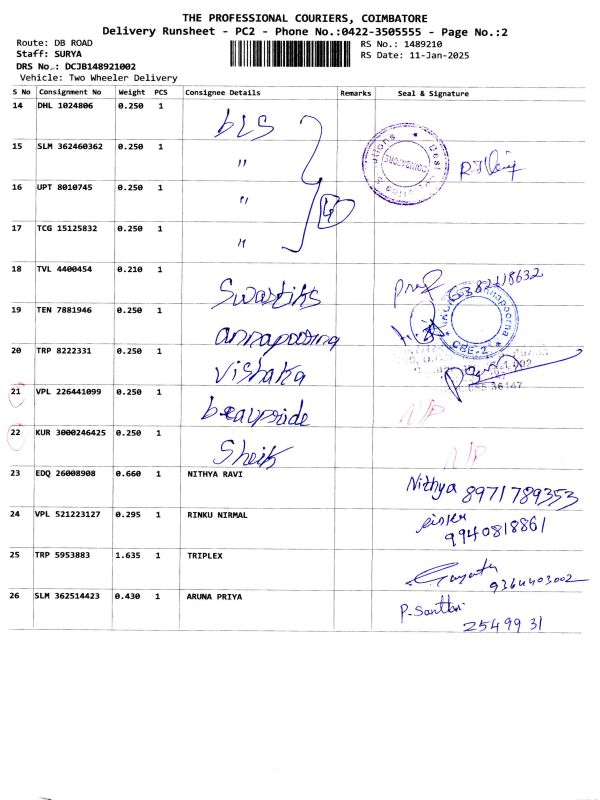 THE PROFESSIONAL COURIERS, COIMBATORE
Delivery Runsheet - PC2 - Phone No.:0422-3505555 - Page No.:2
Route: DB ROAD
Staff: SURYA
DRS No.: DCJB148921002
Vehicle: Two Wheeler Delivery
RS No.: 1489210
RS Date: 11-Jan-2025
S No Consignment No Weight PCS Consignee Details Remarks Seal & Signature
14 DHL 1024806 0.250 1 bLS
15 SLM 362460362 0.250 1 "
16 UPT 8010745 0.250 1 "
17 TCG 15125832 0.250 1 "
4
18 TVL 4400454 0.210 1 Swastiks
19 TEN 7881946 0.250 1 annapoorna
20 TRP 8222331 0.250 1 Vishaka
CBE-2
21 VPL 226441099 0.250 1 N/P
22 KUR 3000246425 0.250 1 Sheik N/P
23 EDQ 26008908 0.660 1 NITHYA RAVI Nithya 8971789353
24 VPL 521223127 0.295 1 RINKU NIRMAL 9940818861
25 TRP 5953883 1.635 1 TRIPLEX 9364403002
26 SLM 362514423 0.430 1 ARUNA PRIYA P. 254993 1